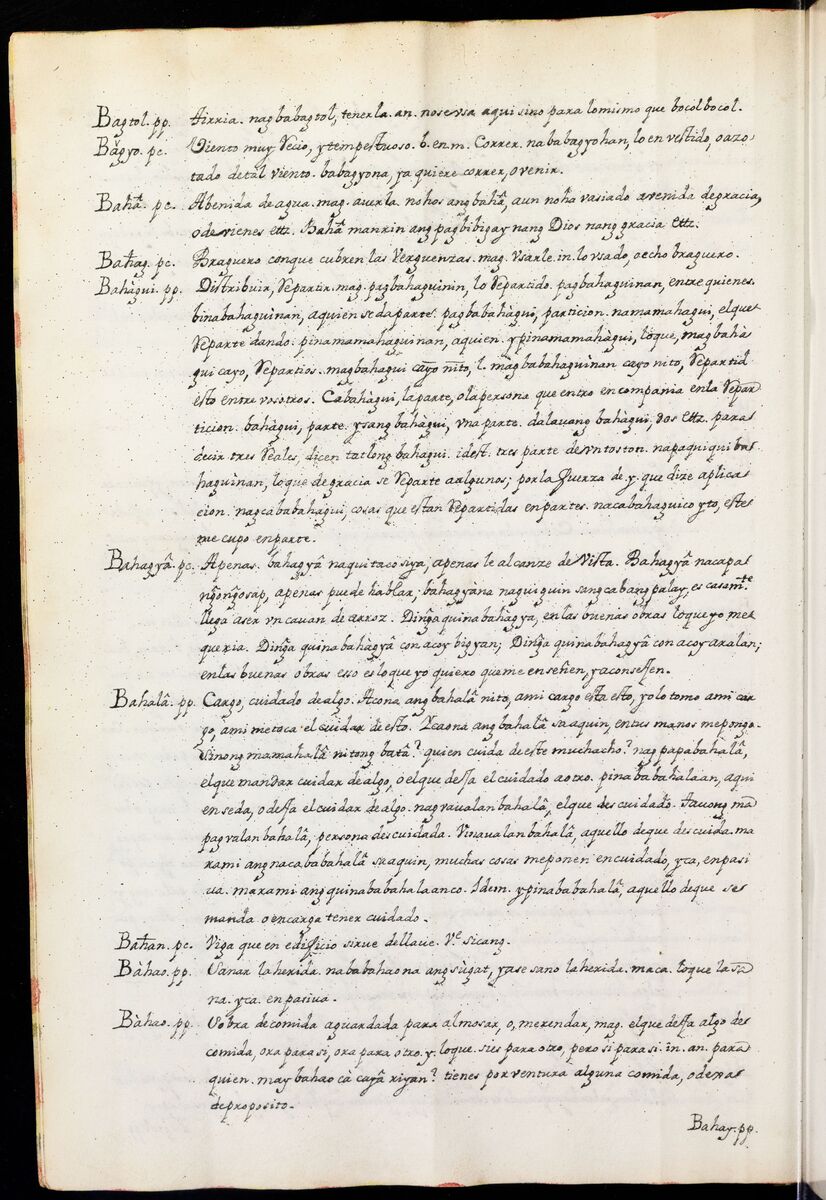 Bagtol. pp. tirria. nagbabagtol, tenerla. an. no se vsa aqui sino para lo mismo que bocol bocol.
Bagyo. pc. Viento muy recio, y tempestuoso. b. en m. Correr. nababagyohan, lo envestido, o azo
tado de tal viento. babagyona, ya quiere correr, o venir.
Bahâ. pc. Abenida de agua. mag. auerla. nohos ang bahâ, aun no ha vasiado avenida de gracia,
o de vienes ettz. Bahâ manxin ang pagbibigay nang Dios nang gracia ettz.
Bahag. pc. Braguero conque cubren las verguenzas. mag. vsarle. in. lo vsado, o echo braguero.
Bahàgui. pp. Distribuir, repartir. mag. pagbahaguinin, lo repartido. pagbahaguinan, entre quienes.
binabahaguinan, a quien se da parte. pagbabahàgui, particion. namamahagui, el que
reparte dando. pinamamahaguinan, a quien. ypinamamahàgui, loque, magbahà
gui cayo, repartios. magbahagui cayo nito, l. màgbabahaguìnan cayo nito, repartid
esto entre vosotros. Cabahàgui, la parte, o la persona que entro en compania en la repar
ticion. bahàgui, parte. ysang bahàgui, vna parte. dalauang bahàgui, dos ettz. para
decir tres reales, dicen tatlong bahagui. idest. tres parte de vn toston. napaquiquiba
haguìnan, lo que de gracia se reparte a algunos; por la fuerza de. y. que dize aplica
cion. nagcababahagui, cosas que estan repartidas en partes. nacabahaguico yto, este
me cupo en parte.
Bahagyâ. pc. Apenas. bahagyâ naquitaco siya, apenas le alcanze de vista. Bahagyâ nacapa
ngongosap, apenas puede hablar, bahagyana naguiguin sang caban palay, es casam.te
llega a ser vn cauan de arroz. Dinga quinabahàgya, en las buenas obras loque yo me
queria. Dinga quinabahàgyâ con acoy bigyan; Dinga quinabahagyâ con acoy axalan;
en las buenas obras esso es loque yo quiero q̃ me enseñen, y aconsejen.
Bahalâ. pp. Cargo, cuidado de algo. Acona ang bahalâ nito, a mi cargo esta esto, yo lo tomo a mi car
go, a mi me toca el cuidar de esto. Ycaona ang bahalâ sa aquin, en tus manos me pongo.
Sinong mamahalâ nitong batâ? quien cuida de este muchacho? nagpapabahalâ,
el que mandar cuidar de algo, o el que deja el cuidado a otro. pinababahalaan, a qui
en se da, o deja el cuidar de algo. nagvaualan bahalâ, el que descuidado. tauong ma
pagvalan bahalâ, persona descuidada. Vinaualan bahalâ, aquello de que descuida. ma
rami ang nacababahalâ sa aquin, muchas cosas me ponen en cuidado, y ca, en pasi
ua. marami ang quinababahalaanco. Idem. ypinababahalâ, aquello de que se
manda o encarga tener cuidado.
Bahan. pc. Viga que en edificio sirue de llaue. Ve. sicang.
Bàhao. pp. Sanar la herida. nababahaona ang sùgat, ya se sano la herida. maca. loque la sa
na. yca. en pasiua.
Bàhao. pp. Sobra de comida aguardada para almosar, o, merendar, mag. el que deja algo de
comida, ora para si, ora para otro. y. loque. si es para otro, pero si para si. in. an. para
quien. may bahao cà cayâ riyan? tienes por ventura alguna comida, o dexas
de proposito.
Bahay. pp.